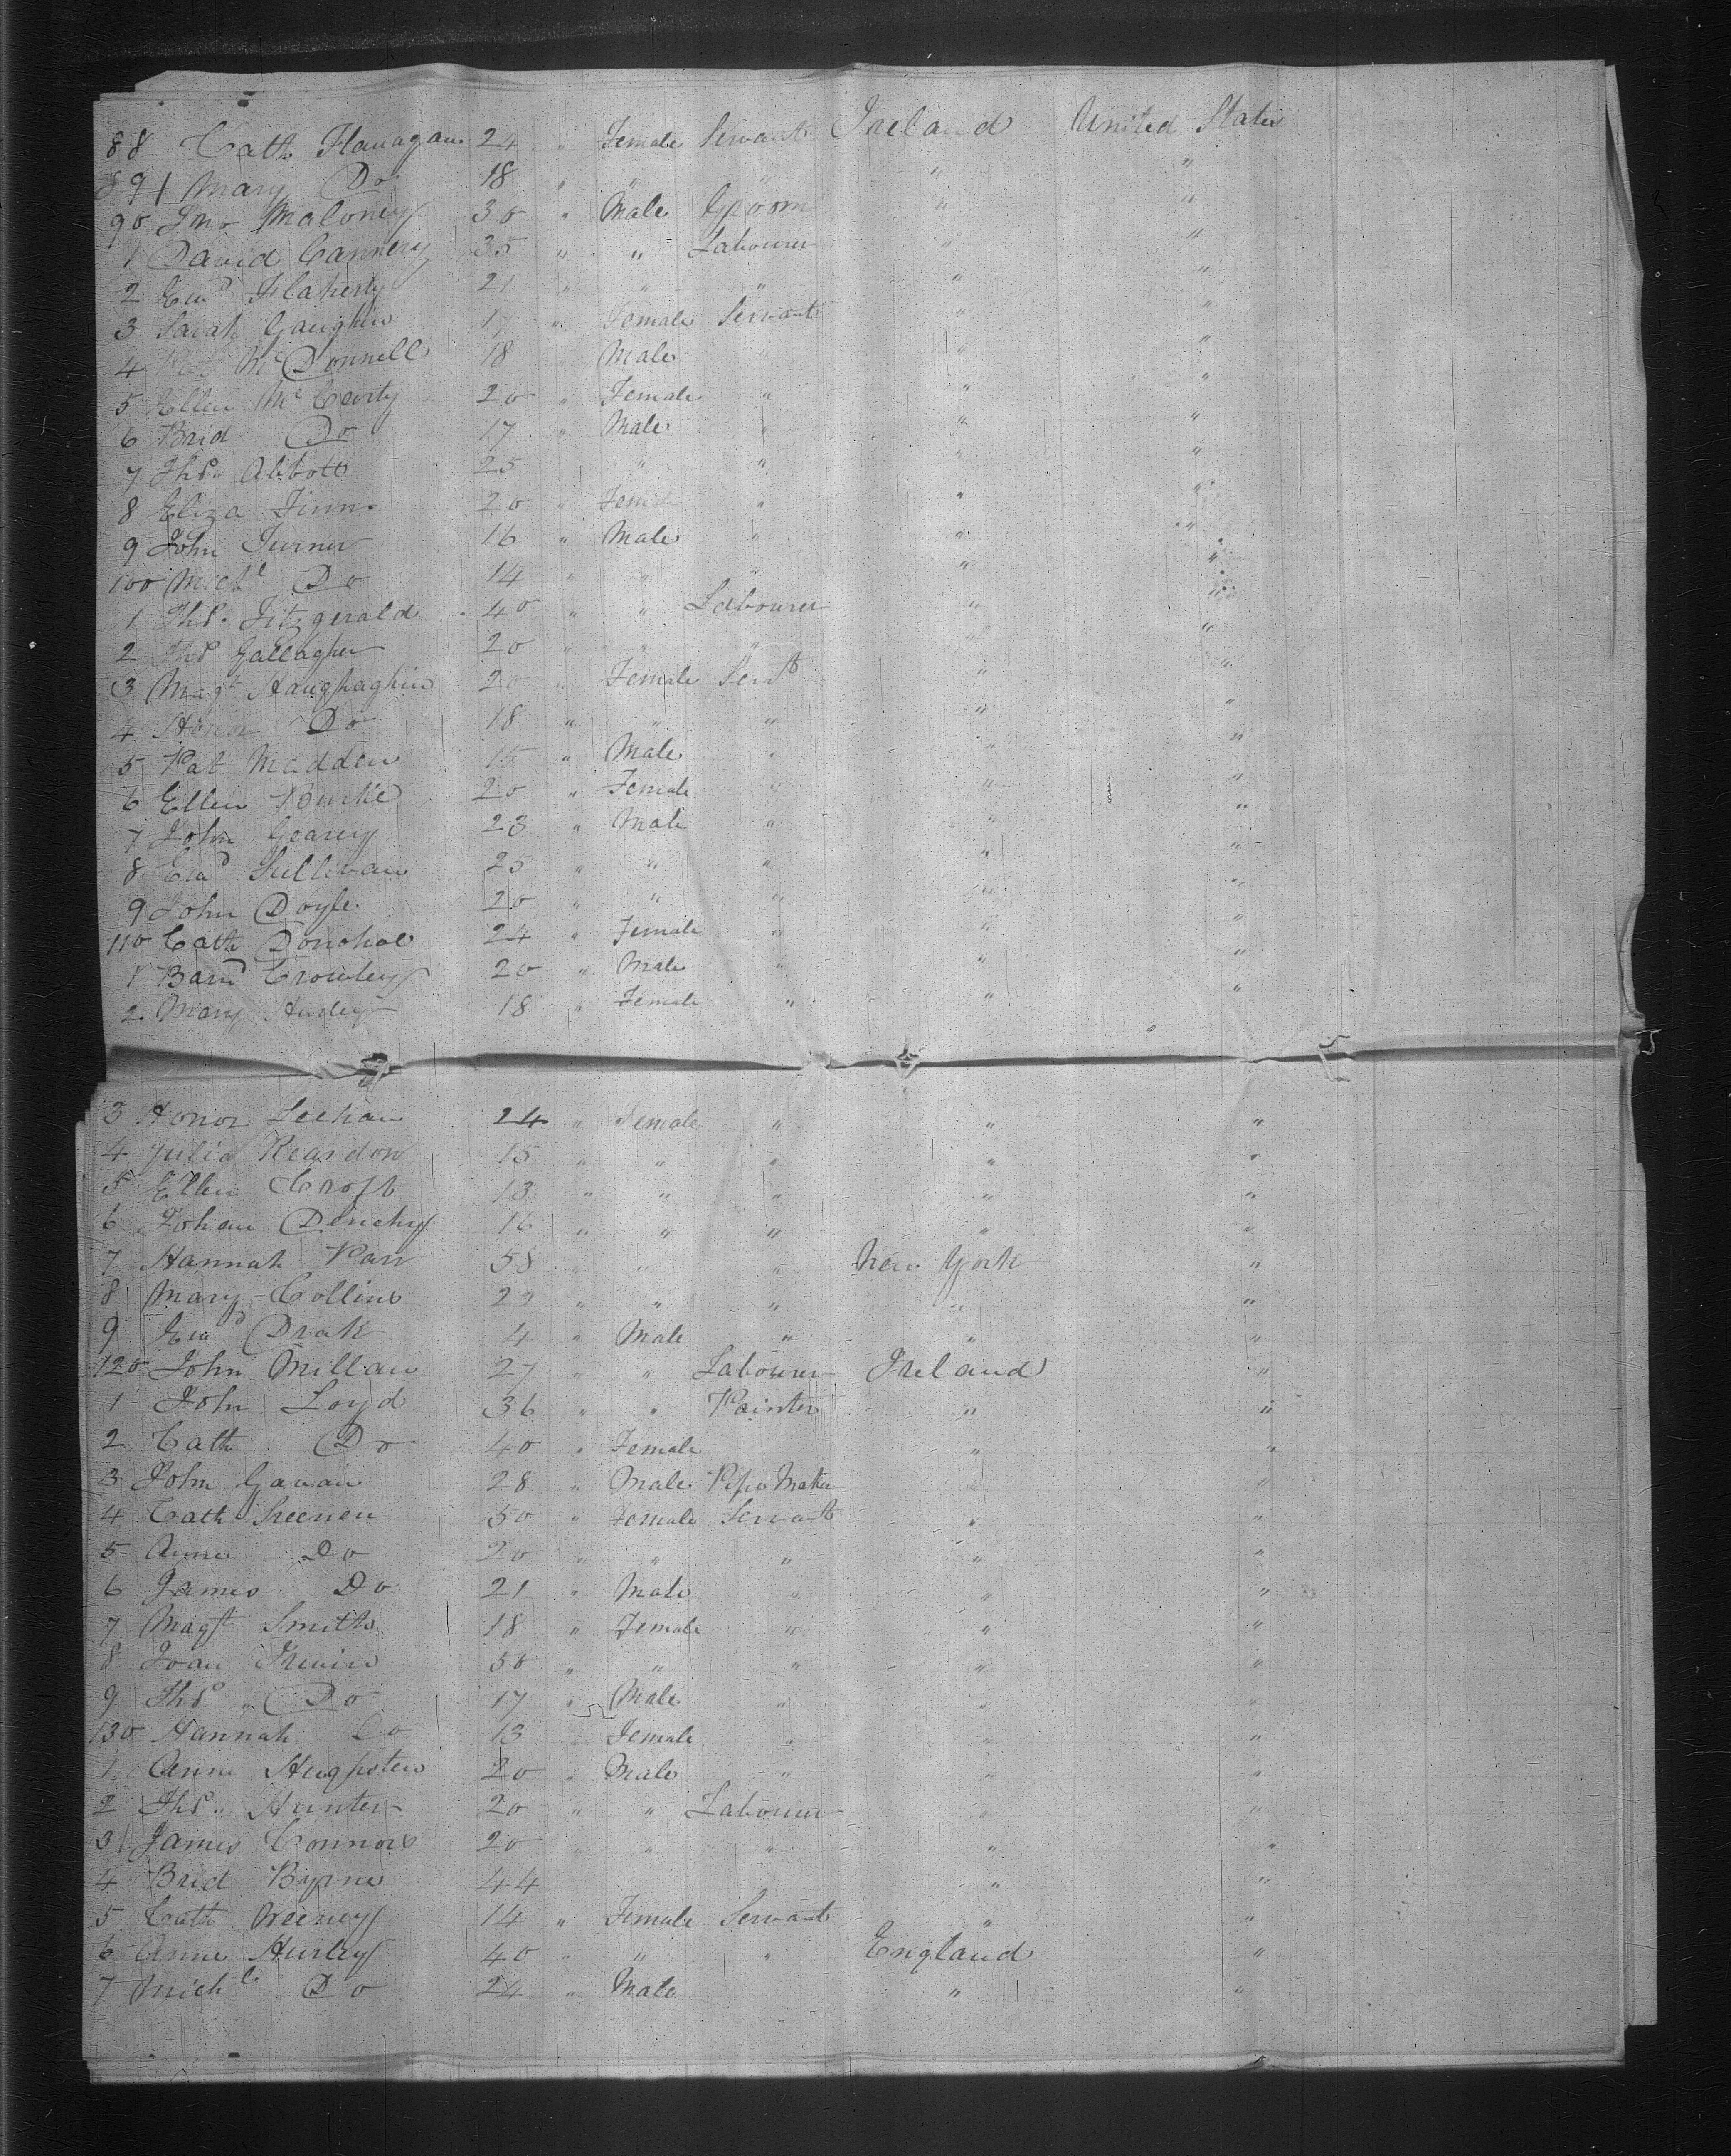 88 Cath Flanagan 24 " Female Servant Ireland United States
89 Mary Do 18 " " " " "
90 Jno Maloney 30 " Male Groom " "
1 David Cannery 35 " " Labourer " "
2 Edwd Flaherty 21 " " " " "
3 Sarah Gaughin 17 " Female Servant " "
4 McDonnell 18 Male " "
5 Ellen McCarty 20 " Female " " "
6 Brid Do 17 " Male " " "
7 Thos Abbott 25 " " " "
8 Eliza Finn 20 " Fem " " "
9 John Turner 16 " Male " " "
100 Michl Do 14 " " " " "
1 Thos. Fitzgerald 40 " " Labourer " "
2 Thos Gallagher 20 " " " " "
3 Magt Haughaghin 20 " Female Servt " "
4 Honor Do 18 " " " " "
5 Pat Madden 15 " Male " " "
6 Ellen Burke 20 " Female " " "
7 John Gearey 23 " Male " " "
8 Edwd Sullivan 25 " " " " "
9 John Doyle 20 " " " " "
110 Cath Donohoe 24 " Female " " "
1 Barnd Crowley 20 " Male " " "
2 Mary Hurley 18 " Female " " "
3 Honor Leehan 24 " Female " " "
4 Julia Reardon 15 " " " " "
5 Ellen Croft 13 " " " " "
6 Johan Denehy 16 " " " " "
7 Hannah Parr 58 " " " New York "
8 Mary Collins 22 " " " " "
9 Edwd Drak 4 " Male " " "
120 John Millan 27 " " Labourer Ireland "
1 John Loyd 36 " " Painter " "
2 Cath Do 40 " Female " "
3 John Gavan 28 " Male Pipe Maker " "
4 Cath Sreenen 50 " Female Servant " "
5 Anne Do 20 " " " " "
6 James Do 21 " Male " " "
7 Magt Smith 18 " Female " " "
8 Joan 50 " " " " "
9 Thos " Do 17 " Male " " "
130 Hannah Do 13 Female " " "
1 Ann Hughsten 20 " Male " " "
2 Thos " Hunter 20 " " Labourer " "
3 James Connors 20 " " " " "
4 Brid Byrne 44 " "
5 Cath Weeney 14 " Female Servant " "
6 Anne Hurley 40 " " " England "
7 Michl Do 24 " Male " "